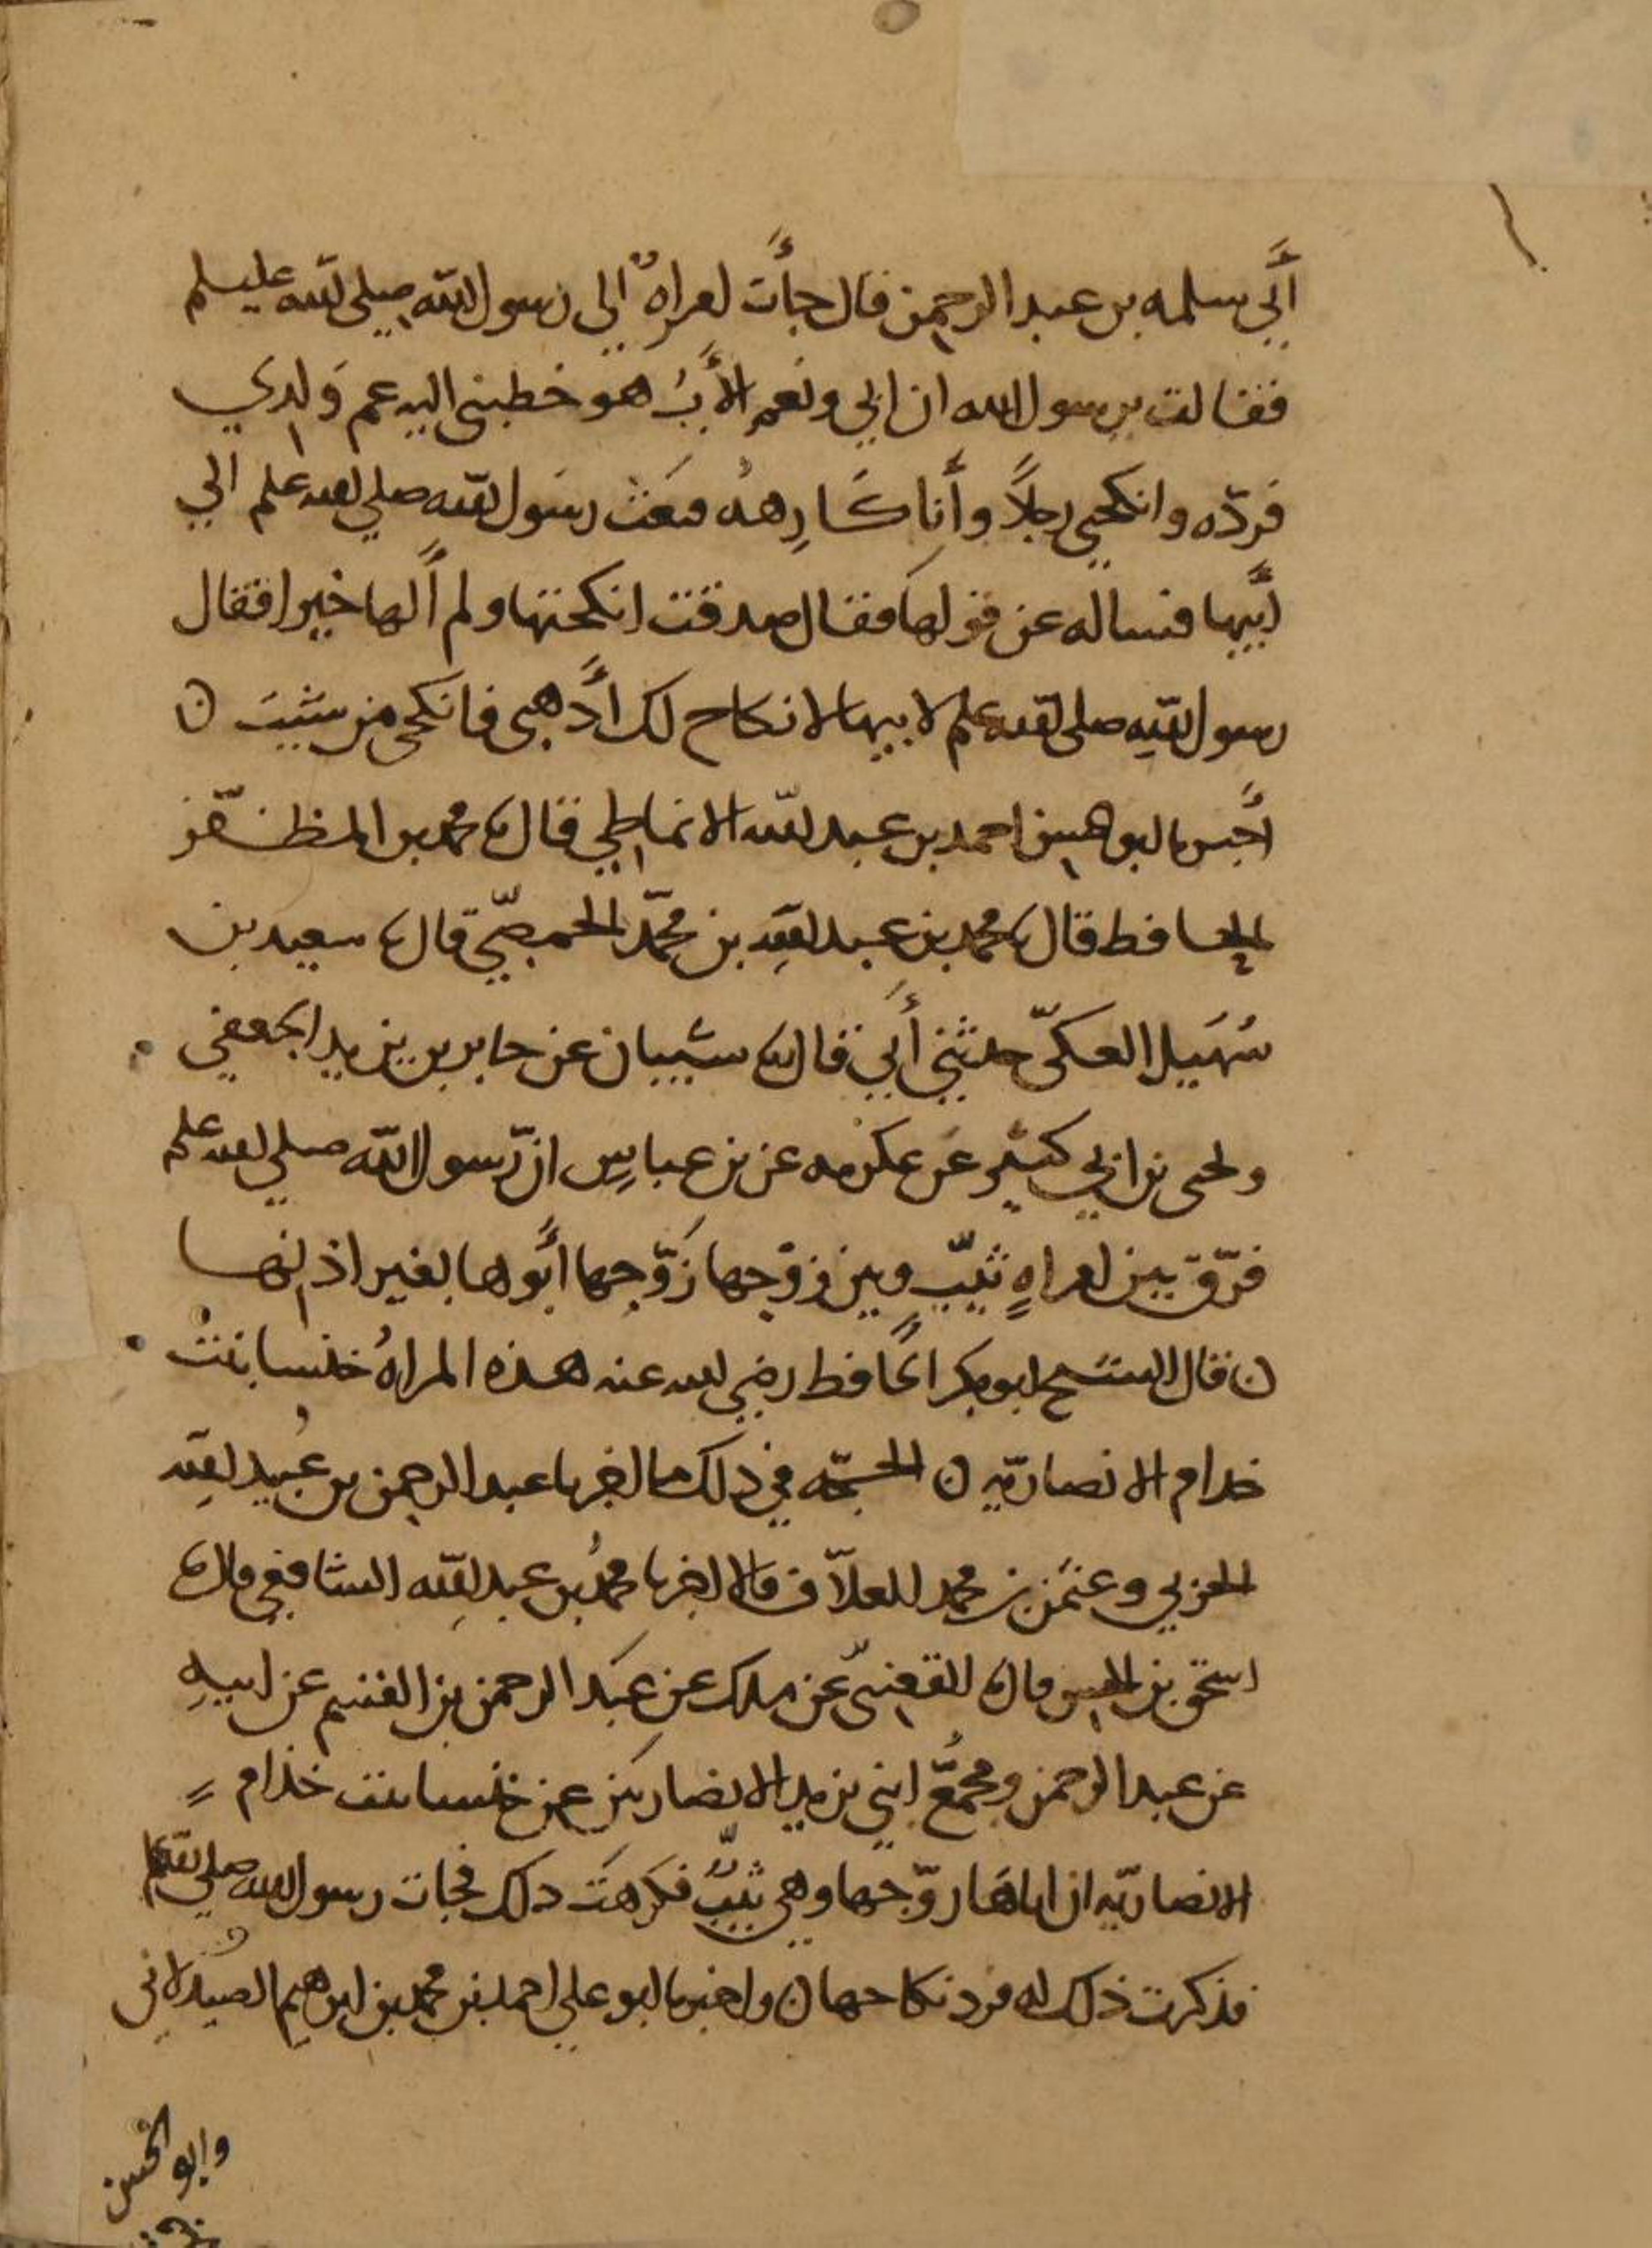 أبي سلمه بن عبد الرحمن قال جأت امراة الى رسول الله صلى الله عليه وسلم
فقالت يرسول الله ان ابي ونعم الأب هو خطبني اليه عم ولدي
فردّه وانكحني رجلاً وأنا كارهة فبعث رسول الله صلى الله علم الي
أبيها فساله عن قولها فقال صدقت انكحتها ولم ألها خيرا فقال
رسول الله صلى الله علم لابيها لا نكاح لك أذهبي فانكحي من شيت ن
أخبرنا ابو الحسين احمد بن عبد الله الانماطي قال نا محمد بن المظفّر
الحافظ قال نا محمد بن عبد الله بن محمّد الحمصيّ قال نا سعيد بن
سُهَيل العكيّ حدثني أبي قال نا شيبان عن جابر بن يزيد الجعفي
ويحيى بن ابي كثير عن عكرمه عن بن عباس ان رسول الله صلى الله علم
فرّق بين امراةٍ ثيّبٍ وبين زوجها زَوّجها أبوها بغير اذنها
ن قال الشيخ ابو بكر الحافظ رضي الله عنه هذه المراةُ خنسا بنت
خدام الانصاريّه ن الحجّه في ذلك ما اخبرنا عبد الرحمن بن عُبيد الله
الحربي وعثمن بن محمد العلاّف قالا اخبرنا محمدُ بن عبد الله الشافعي قال نا
اسحق بن الحسن قال نا القعنبيّ عن ملك عن عبد الرحمن بن القسم عن ابيهِ
عن عبد الرحمن ومجمّع ابني يزيد الانصاريين عن خنسا بنت خذام
الانصاريّه ان اباها زوّجها وهي ثيّبٌ فكرهت ذلك فجات رسول الله صلى الله علم
فذكرت ذلك له فرد نكاحها ن واخبرنا ابو علي احمد بن محمد بن ابرهيم الصيدلاني
وابو الحسن